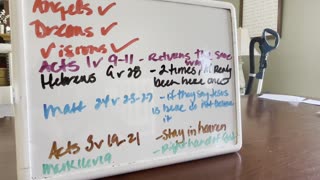 Angels ✓
Dreams ✓
Visions ✓
Acts 1v 9-11 - Returns the same way
Hebrews 9v28 - 2 times, already been here once
Matt 24v23-27 - if they say Jesus
is here do not believe
it
Acts 3v19-21 - stay in heaven
Mark 16v19 - Right hand of God